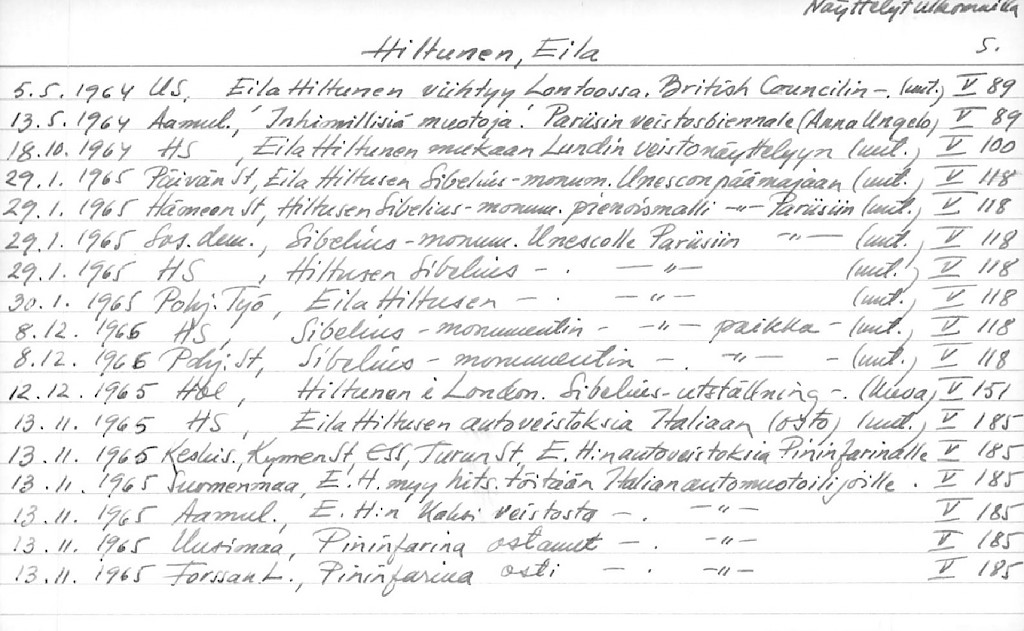 Näyttelyt ulkomailla
Hiltunen, Eila 5.
5.5.1964 US. Eila Hiltunen viihtyy Lontoossa. British Councilin -. (uut.) V 89
13.5.1964 Aamul., 'Inhimillisiä muotoja'. Pariisin veistosbiennale (Anna Ungelo) V 89
18.10.1964 HS, Eila Hiltunen mukaan Lundin veistonäyttelyyn (uut.) V 100
29.1.1965 Päivän St, Eila Hiltusen Sibelius-monum. Unescon päämajaan (uut.) V 118
29.1.1965 Hämeen St, Hiltusen Sibelius-monum. pienoismalli -"- Pariisiin (uut.) V 118
29.1.1965 Sos.dem., Sibelius-monum. Unescolle Pariisiin -"- (uut.) V 118
29.1.1965 HS, Hiltusen Sibelius -. -"- (uut.) V 118
30.1.1965 Pohj. Työ, Eila Hiltusen -. -"- (uut.) V 118
8.12.1966 HS, Sibelius-monumentin -"- paikka - (uut.) V 118
8.12.1966 Pohj. St, Sibelius-monumentin -. -"- - (uut.) V 118
12.12.1965 Hbl, Hiltunen i London. Sibelius-utställning -. (kuva) V 151
13.11.1965 HS, Eila Hiltusen autoveistoksia Italiaan (osto) (uut.) V 185
13.11.1965 Keskis., Kymen St, ESS, Turun St, E. H:n autoveistoksia Pininfarinalle V 185
13.11.1965 Suomenmaa, E.H. myy hits. töitään Italian automuotoilijoille. V 185
13.11.1965 Aamul., E. H:n kaksi veistosta -. -"- V 185
13.11.1965 Uusimaa, Pininfarina ostanut -. -"- V 185
13.11.1965 Forssan L., Pininfarina osti -. -"- V 185